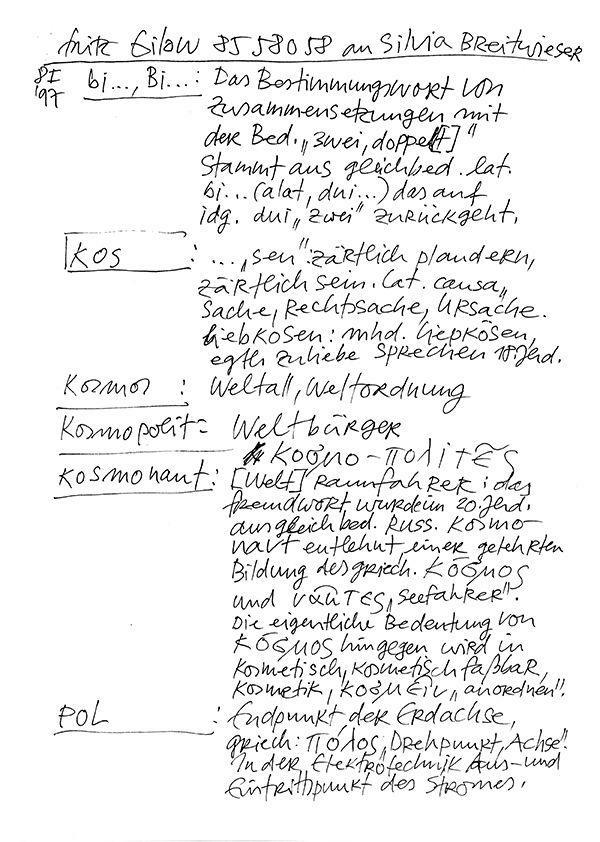 fritz Gilow 8558058 an Silvia BREitwieser
8I '97 bi..., Bi...: Das Bestimmungswort von
Zusammensetzungen mit
der Bed. „zwei, doppel[t]"
Stammt aus gleichbed. lat.
bi...(alat, dui...) das auf
idg. dui „zwei" zurückgeht.
KOS : ... „sen": zärtlich plaudern,
zärtlich sein. Lat. causa „
Sache, Rechtssache, Ursache.
liebkosen: mhd. liepkōsen,
egtl. zuliebe sprechen 18. Jhd.
Kosmos : Weltall, Weltordnung
Kosmopolit= Weltbürger
KOσmo-πολiτES
KOSMONAUT: [Welt] RAUMFAHRER: das
Fremdwort wurde im 20. Jhd.
aus gleichbed. Russ. Kosmo-
navt entlehnt einer gelehrten
Bildung des griech. KÓσmos
und vaūTES „Seefahrer".
Die eigentliche Bedeutung von
KÓσmos hingegen wird in
kosmetisch, kosmetisch faßbar,
Kosmetik, KOσmEīv „anordnen".
POL : Endpunkt der Erdachse,
griech: πόλος „Drehpunkt, Achse".
In der Elektrotechnik Aus- und
Eintrittspunkt des Stromes.